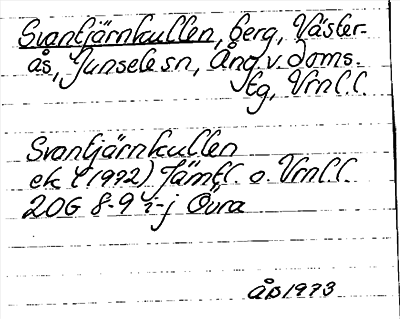 Svantjärnkullen, berg, Väster-
ås, Junsele sn, Ång. v. doms.
tg, Vrnl. l.
Svantjärnkullen
ek (1972) Jämtl. o. Vrnl. l.
20G 8-9 i-j Övra
ÅB 1973